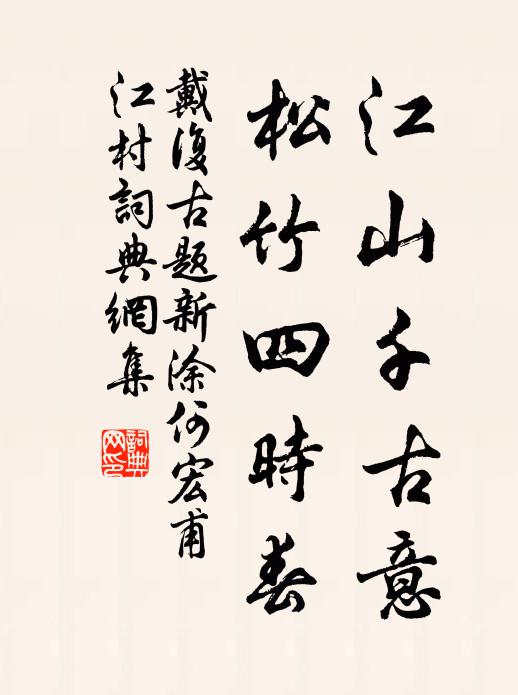 江山千古意
松竹四時春
戴復古題新涂何宏甫
江村詞典網集
詞典
网印